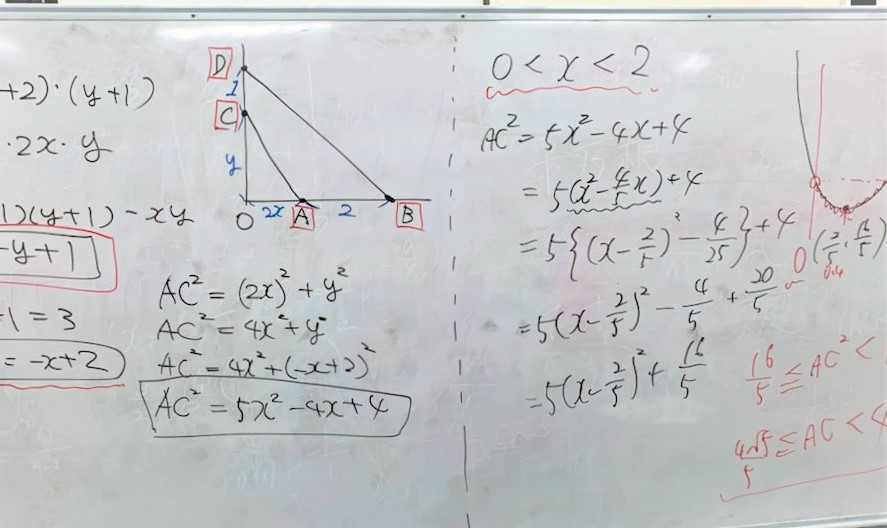 +2)·(y+1)
·2x·y
1)(y+1)-xy
-y+1
1=3
=-x+2
D
1
C
y
O 2x A 2 B
AC²=(2x)²+y²
AC²=4x²+y²
AC²=4x²+(-x+2)²
AC²=5x²-4x+4
0<x<2
AC²=5x²-4x+4
=5(x²-4/5x)+4
=5{(x-2/5)²-4/25}+4
=5(x-2/5)²-4/5+20/5
=5(x-2/5)²+16/5
0
(2/5, 16/5)
0.4
16/5≦AC²<
4√5/5≦AC<4